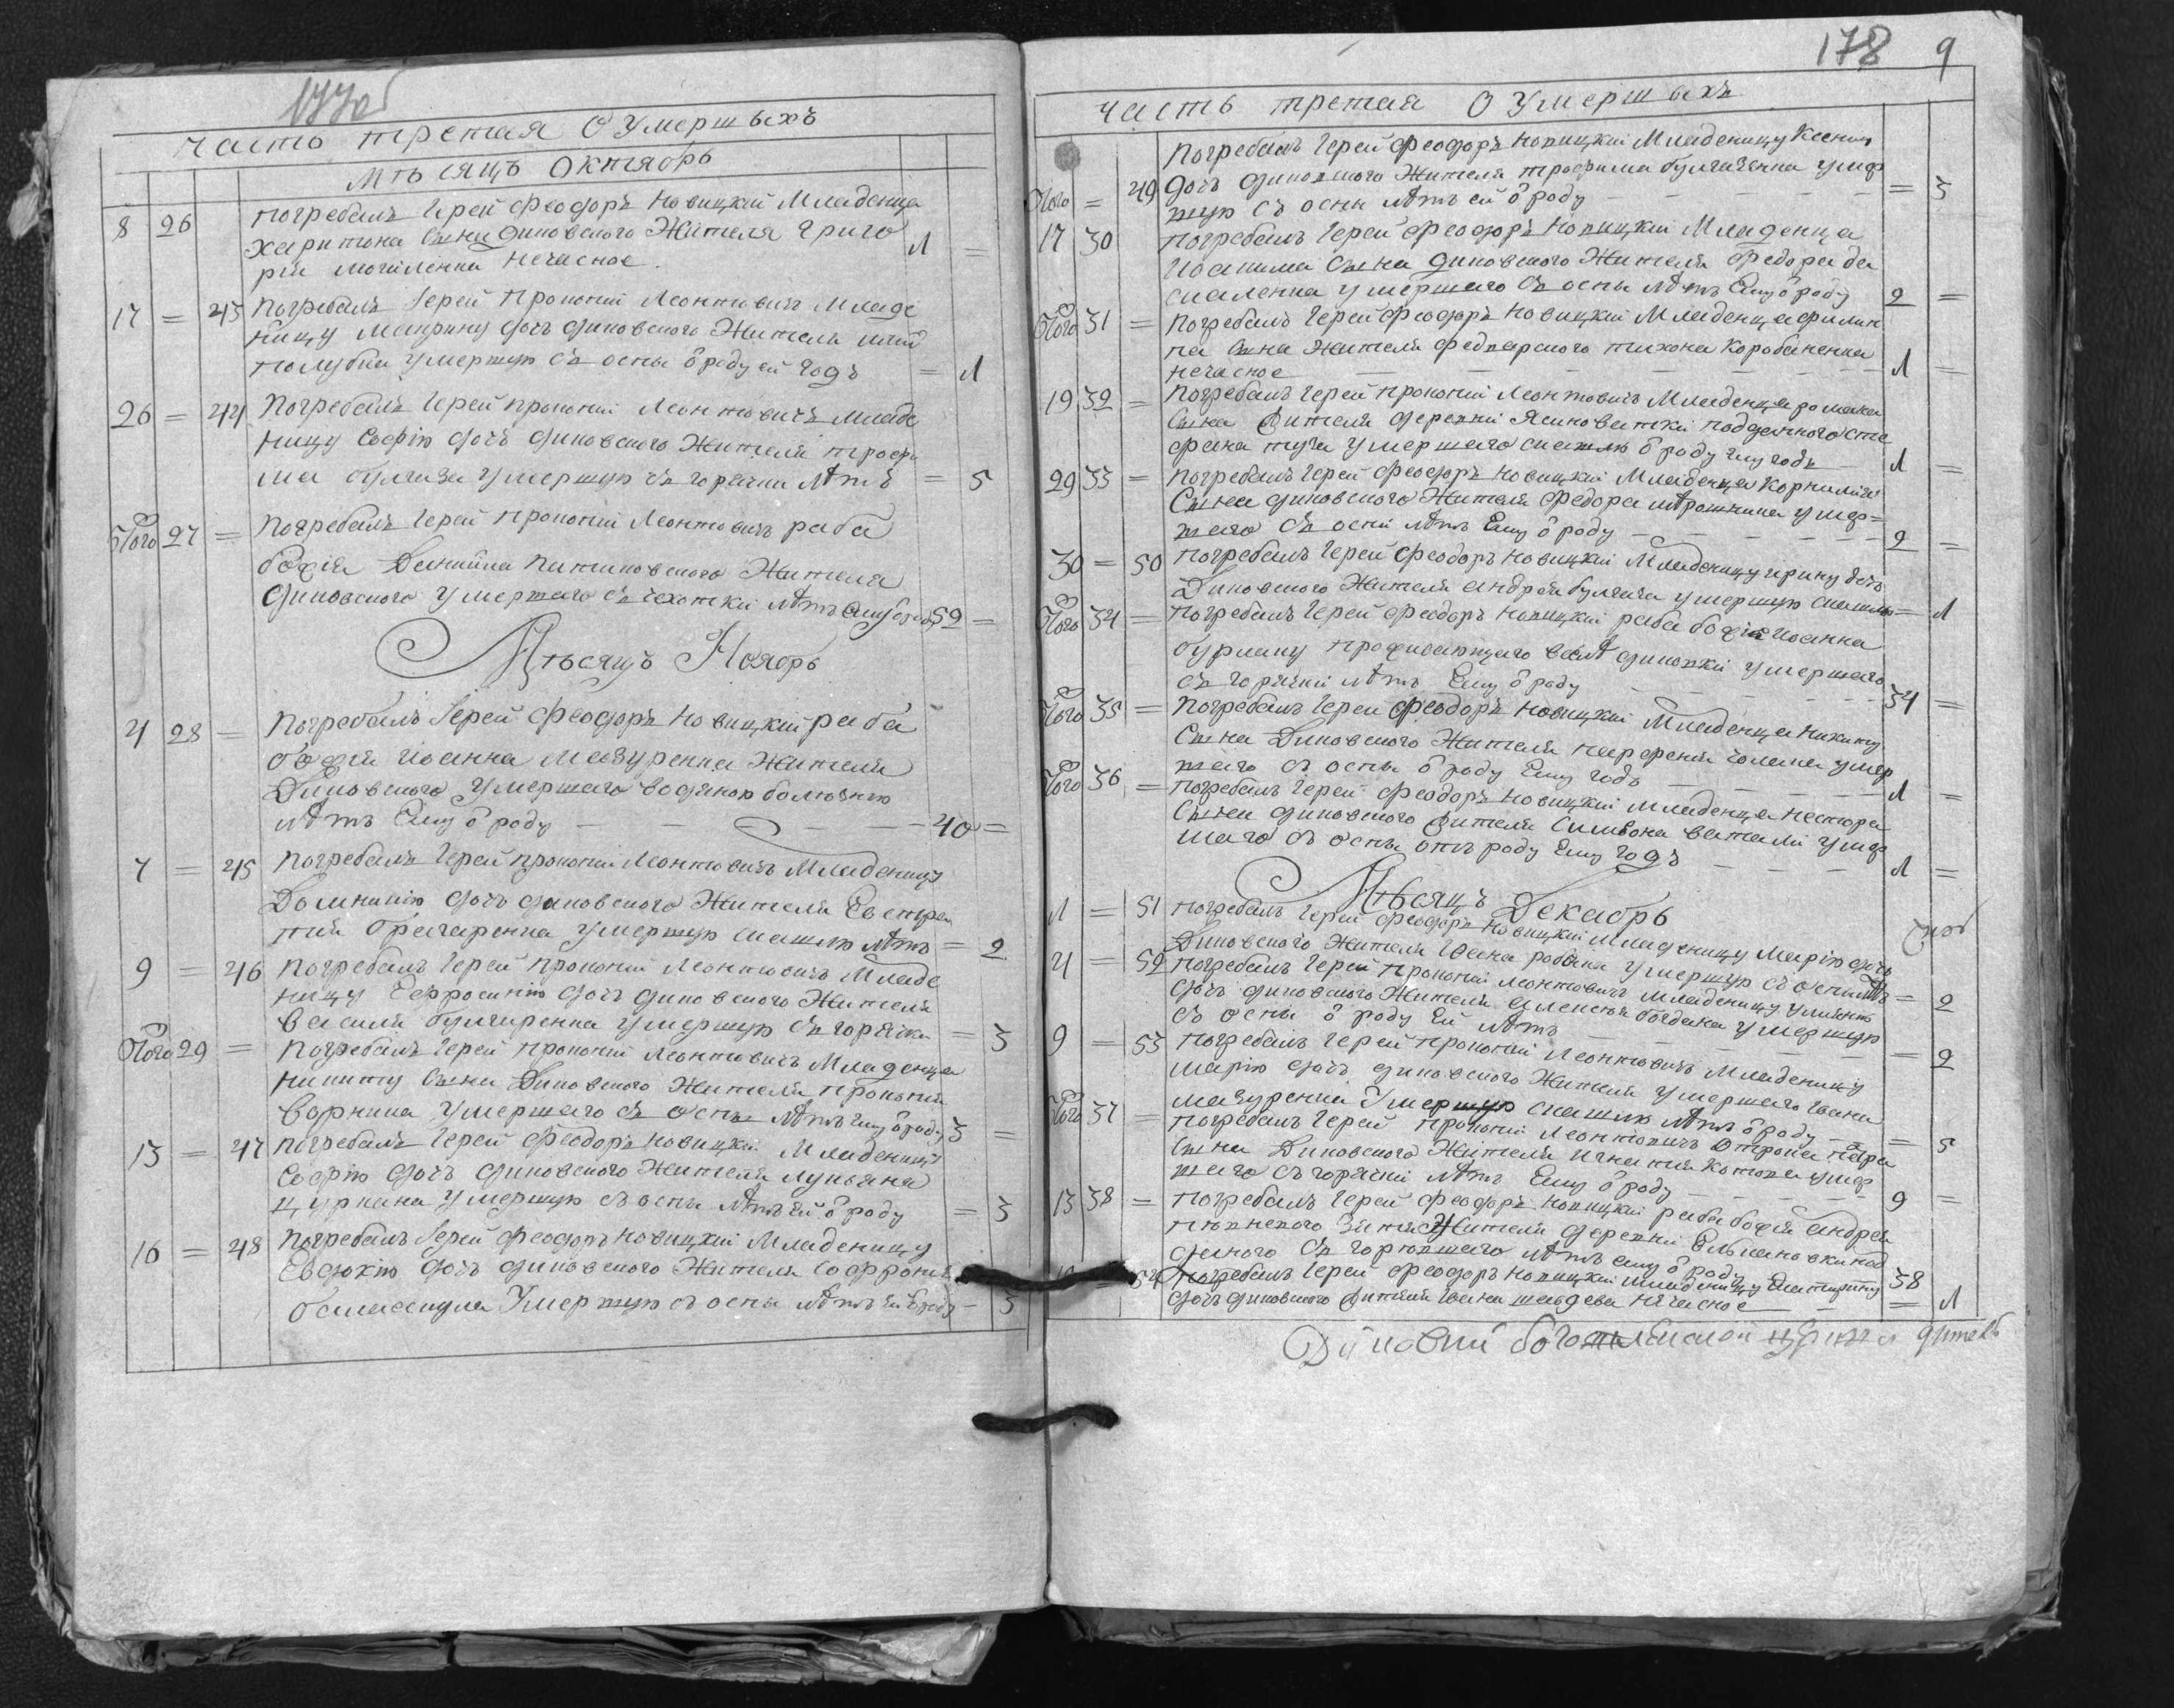 часть третая О Умершыхъ
Мѣсяцъ Октябрь
8 26 Погребалъ Іерей Феодоръ Новицкій Младенца
Харитона Сына диковского Жителя Григо
рія могиленка нечасное Л =
17 = 43 Погребалъ Іерей Прокопій Леонтовичъ Младе
ницу Макрину дочъ диковского Жителя
голубки умершую съ оспы ѿ роду ей годъ = Л
26 = 44 Погребалъ Іерей Прокопій Леонтовичъ Младе
ницу Софію дочъ диковского Жителя трофи
ма булгака умершую съ горячки лѣтъ = 5
Того 27 = Погребалъ Іерей Прокопій Леонтовичъ раба
божія Даніила Жителя
диковского умершаго съ чехотки лѣтъ ему ѿ роду 59 =
Мѣсяцъ Ноябрь
4 28 = Погребалъ Іерей Феодоръ Новицкій раба
божія Иоанна Мазуренка Жителя
Диковского умершаго водяною болѣзнію
лѣтъ Ему ѿ роду 40 =
7 = 45 Погребалъ Іерей Прокопій Леонтовичъ Младеницу
Домникію дочъ диковского Жителя Евстра
тия умершую кашлю лѣтъ = 2
9 = 46 Погребалъ Іерей Прокопій Леонтовичъ Младе
ницу Еефросинію дочъ диковского Жителя
василя умершую съ горячки = 3
Того 29 = Погребалъ Іерей Прокопій Леонтовичъ Младенца
никиту Сына Диковского Жителя прокопия
умершаго съ оспы лѣтъ ему ѿ роду 3 =
13 = 47 Погребалъ Іерей Феодоръ Новицкій Младеницу
Софію дочъ диковского Жителя лукьяна
цуркана умершую съ оспы лѣтъ ей ѿ роду = 3
16 = 48 Погребалъ Іерей Феодоръ Новицкій Младеницу
Евдокію дочъ диковского Жителя Софрония
Умершую съ оспы лѣтъ ей ѿ роду = 3
178 9
часть третая О Умершыхъ
Погребалъ Іерей Феодоръ Новицкій Младеницу Ксению
Того = 49 дочъ диковского Жителя трофима умер
шую съ оспы лѣтъ ей ѿ роду = 3
17 30 Погребалъ Іерей Феодоръ Новицкій Младенца
Иоакима Сына диковского Жителя Федора
умершаго съ оспы лѣтъ Ему ѿ роду 2 =
Того 31 = Погребалъ Іерей Феодоръ Новицкій Младенца филип
па Сына Жителя тихона
нечасное Л =
19 32 = Погребалъ Іерей Прокопій Леонтовичъ Младенца романа
Сына Жителя деревни Ясиноватки подданного сте
фана умершаго кашлю ѿ роду ему годъ Л =
29 33 = Погребалъ Іерей Феодоръ Новицкій Младенца Корнилия
Сына диковского Жителя Федора умер=
шаго съ оспы лѣтъ Ему ѿ роду 2 =
30 = 50 Погребалъ Іерей Феодоръ Новицкій Младеницу ирину дочъ
Диковского Жителя андрея булгака умершую кашлю = Л
Того 34 = Погребалъ Іерей Феодоръ Новицкій раба божія иоанна
умершаго
съ горячки лѣтъ Ему ѿ роду 34 =
Того 35 = Погребалъ Іерей Феодоръ Новицкій Младенца Никиту
Сына Диковского Жителя умер
шаго съ оспы ѿ роду Ему годъ Л =
Того 36 = Погребалъ Іерей Феодоръ Новицкій Младенца нестора
Сына диковского Жителя Симеона умер
шаго съ оспы отъ роду Ему годъ Л =
Мѣсяцъ Декабрь
Л = 51 Погребалъ Іерей Феодоръ Новицкій Младеницу Марію дочъ
Диковского Жителя умершую съ оспы лѣтъ = 2
4 = 52 Погребалъ Іерей Прокопій Леонтовичъ Младеницу
дочъ диковского Жителя алексея богдана умершую
съ оспы ѿ роду Ей лѣтъ = 2
9 = 53 Погребалъ Іерей Прокопій Леонтовичъ Младеницу
марію дочъ диковского Жителя умершаго Ивана
мазуренка Умершую кашлю лѣтъ ѿ роду = 5
Того 37 = Погребалъ Іерей Прокопій Леонтовичъ Отрока
Сына Диковского Жителя игнатия умер
шаго съ горячки лѣтъ Ему ѿ роду 9 =
13 38 = Погребалъ Іерей Феодоръ Новицкій раба божія андрея
Жителя деревни
лѣтъ ему ѿ роду 38
= 54 Погребалъ Іерей Феодоръ Новицкій Младеницу Екатерину
дочъ диковского Жителя Ивана нечасное = Л